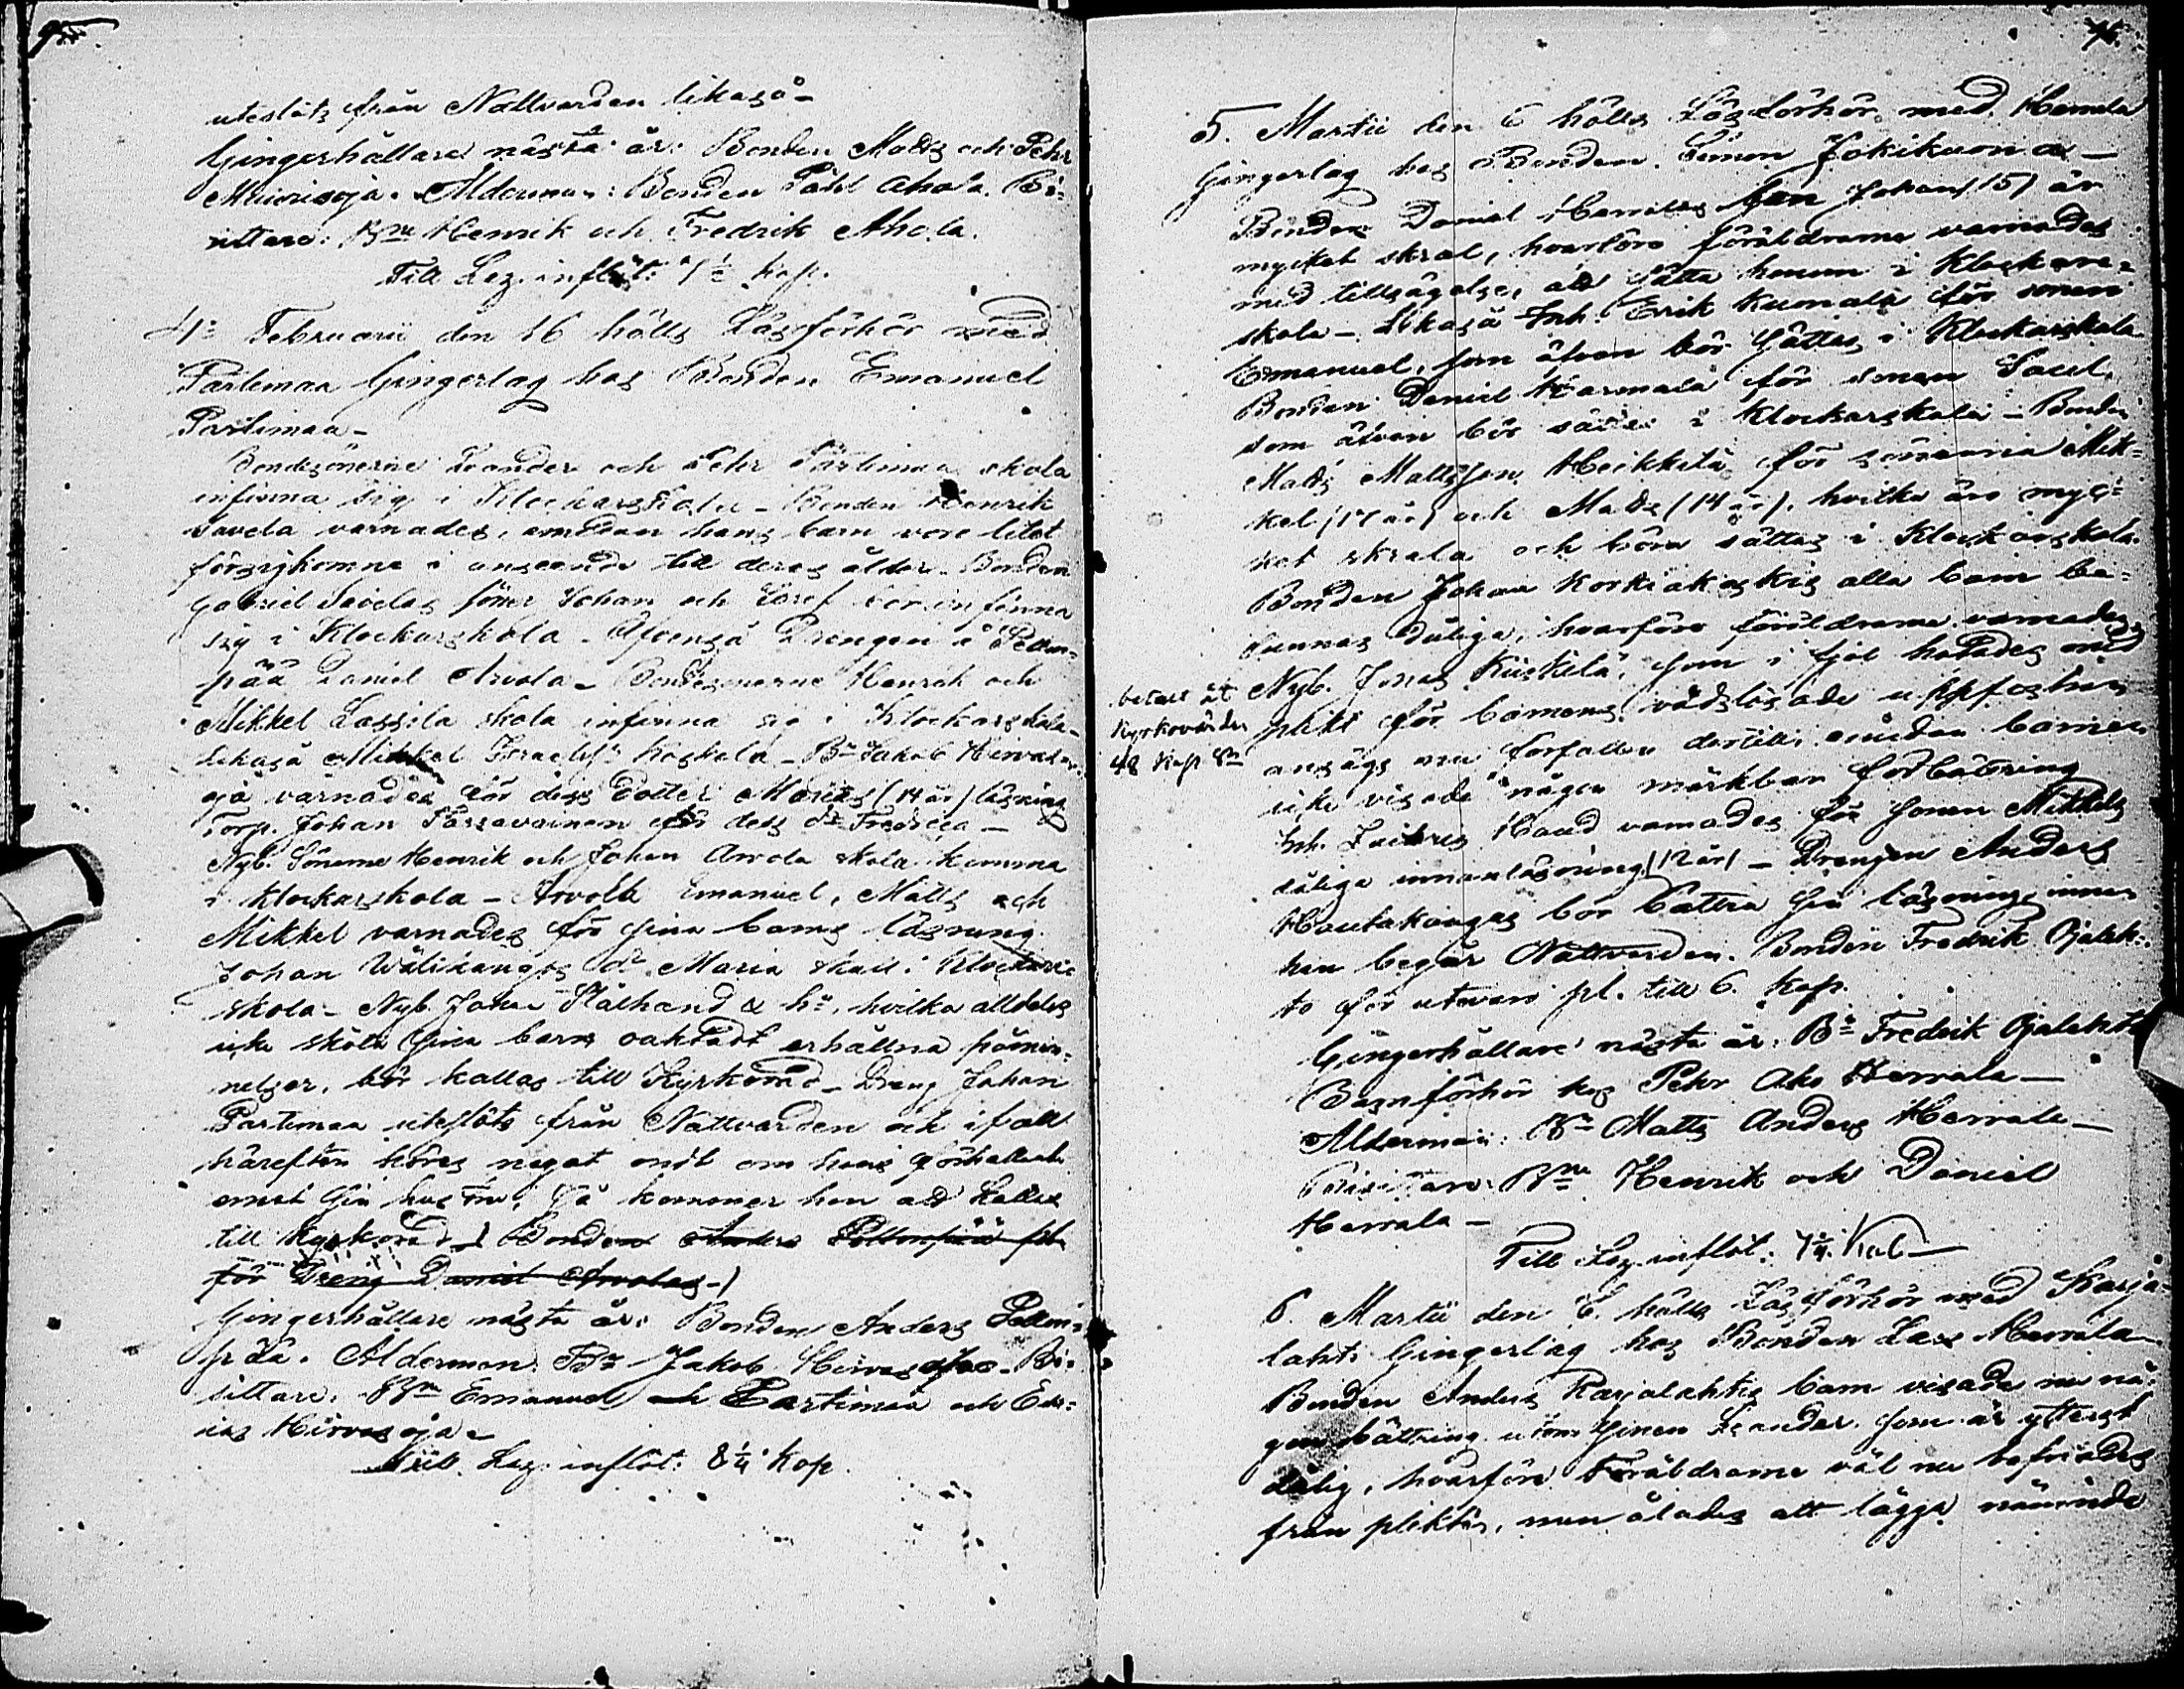 95
uteslöts från Nattvarden likaså –
Gingerhållare nästa år: Bonden Matts och Pehr
Muurisoja. Ålderman: Bonden Påhl Ahola. Bi-
sittare: Bne Henrik och Fredrik Ahola.
Till Lez. inflöt: 7½ kop.
4: Februarii den 16 hölls Läsförhör med
Partimaa Gingerlag hos Bonden Emanuel
Partimaa –
Bondesönerne Leander och Pehr Partimaa skola
infinna sig i Klockarskola – Bonden Henrik
Savela varnades, emedan hans barn voro litet
försigkomne i anseende till deras ålder. Bonden
Gabriel Savelas söner Johan och Josef bör infinna
sig i Klockarskola – Äfvenså Drengen å Pellin-
pää Daniel Arvola – Bondesönerne Henrik och
Mikkel Lassila skola infinna sig i Klockarskola –
Likaså Mikkel Israelss. Koskela – Bn Jakob Hirvas-
oja varnades för dess dotter Marias (14 år) läsning
Torp. Johan Parssavainen för dess dr Fredrica –
Nyb. Sönerne Henrik och Johan Arvola skola komma
i Klockarskola – Arvola Emanuel, Matts och
Mikkel varnades för sina barns läsning.
Johan Wälikangas dr Maria skall i Klockare
skola – Nyb. Johan Stålhand & hu, hvilka alldeles
icke sköta sina barn oaktadt erhållna påmin-
nelser, bör kallas till Kyrkoråd – Dreng Johan
Partimaa uteslöts från Nattvarden och ifall
härefter höres något ondt om hans förhållande
emot sin hustru, så kommer han att kallas
till Kyrkoråd – (Bonden Anders Pellinpää pl.
för Dreng Daniel Arvolas –)
Gingerhållare nästa år: Bonden Anders Pellin-
pää. Ålderman: Bn Jakob Hirvasoja – Bi-
sittare: Bne Emanuel Partimaa och
Hirvasoja –
Till Lez. inflöt: 8¼ kop.
96.
5. Martii den 6 hölls Läsförhör med Herrala
Gingerlag hos Bonden Simon Jokikuona –
Bonden Daniel Herralas son Johan (15) är
mycket skral, hvarföre föräldrarne varnades
med tillsägelse, att sätta honom i Klockare-
skola – Likaså Inh. Erik Kumala för sonen
Emanuel, som äfven bör sättas i Klockarskola
Bonden Daniel Karmala för sonen Saul,
som äfven bör sättas i Klockarskola – Bonden
Matts Mattsson Heikkilä för sönerna Mik-
kel (17 år) och Matts (14 år), hvilka äro myc-
ket skrala och böra sättas i Klockarskola.
Bonden Johan Korkiakoskis alla barn be-
funnos dåliga, hvarföre föräldrarne varnades
Nyb. Jonas Kuskila, som i fjol hotades med
plikt för barnens vårdslösade uppfostran
ansågs nu förfallen dertill, emedan barnen
icke visade någon märkbar förbättring
betalt åt
Kyrkovärden
48 kop Sr
Inh. Haud varnades för sonen Mikkels
dåliga innanläsning (12 år) – Drengen Anders
Hautakangas bör bättra sin läsning innan
han begår Nattvarden. Bonden Fredrik Ojaleh-
to för utevaro pl. till 6. kop.
Gingerhållare nästa år: Bn Fredrik Ojalehto
Barnförhör hos Pehr Aho Herrala –
Ålderman: Bn Matts Anders Herrala –
Bisittare: Bne Henrik och Daniel
Herrala –
Till Lez. inflöt: 7¼ kop –
6. Martii den 8. hölls Läsförhör med Karja-
lahti Gingerlag hos Bonden Lars Herrala –
Bonden Anders Karjalahtis barn visade nu nå-
gon bättring utom sonen Leander som är ytterst
dålig, hvarföre Föräldrarne väl nu befriades
från plikten, men ålades att lägga nämnde